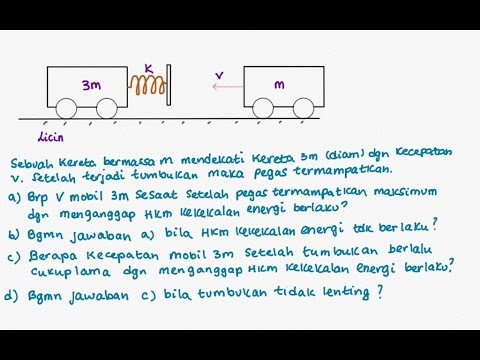 3m
K
v
m
licin
Sebuah Kereta bermassa m mendekati Kereta 3m (diam) dgn Kecepatan
v. Setelah terjadi tumbukan maka pegas termampatkan.
a) Brp V mobil 3m sesaat setelah pegas termampatkan maksimum
dgn menganggap HKm Kekekalan energi berlaku?
b) Bgmn jawaban a) bila HKm Kekekalan energi tdk berlaku?
c) Berapa Kecepatan mobil 3m setelah tumbukan berlalu
cukup lama dgn menganggap HKm Kekekalan energi berlaku?
d) Bgmn jawaban c) bila tumbukan tidak lenting ?